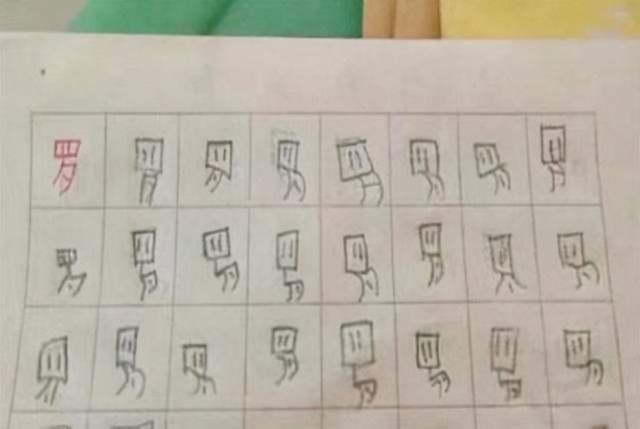 罗 罗 罗 罗 罗 罗 罗 罗
罗 罗 罗 罗 罗 罗 罗 罗
罗 罗 罗 罗 罗 罗 罗 罗